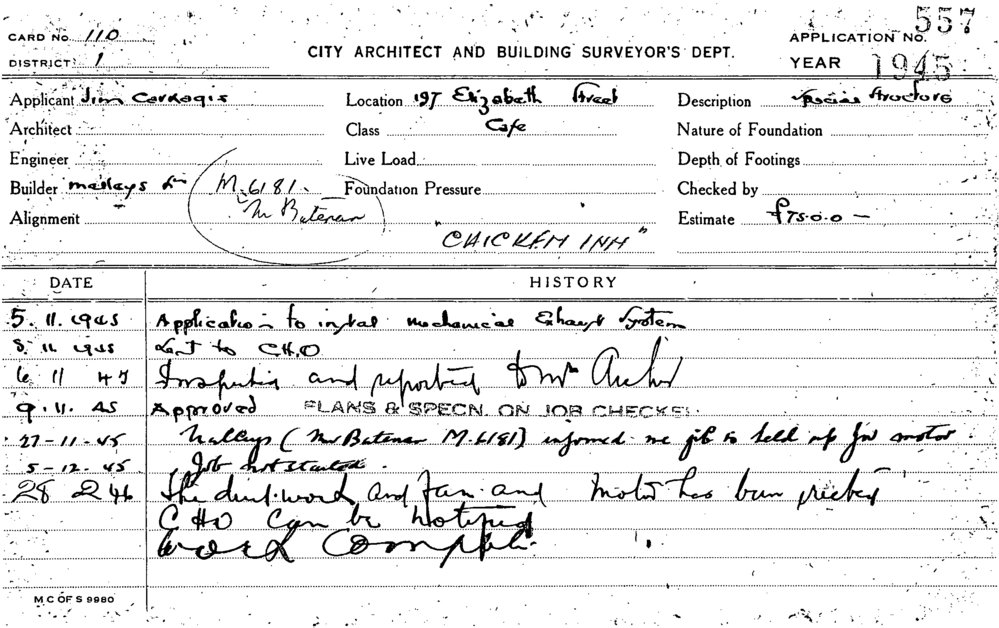 CARD No 110
DISTRICT 1
CITY ARCHITECT AND BUILDING SURVEYOR'S DEPT.
APPLICATION No. 557
YEAR 1945
Applicant Jim
Location 197 Elizabeth Street
Description Special Structure
Architect
Class Cafe
Nature of Foundation
Engineer
Live Load
Depth of Footings
Builder Malleys Ltd
M.6181.
Mr Bateman
Foundation Pressure
Checked by
Alignment
Estimate £75.0.0 —
"CHICKEN INN"
DATE
HISTORY
5. 11. 1945 Application to instal mechanical Exhaust System
5. 11. 1945 Sent to C.H.O
6 11 45 Inspection and reported to Mr
9. 11. 45 Approved PLANS & SPECN. ON JOB CHECKE
27-11-45 Malleys (Mr Bateman M.6181) informed me job is held up for motor.
5-12-45 Job not started.
28 2 46 The duct work and Fan and Motor has been erected
CHO Can be Notified
Work Complete.
M C OF S 9980